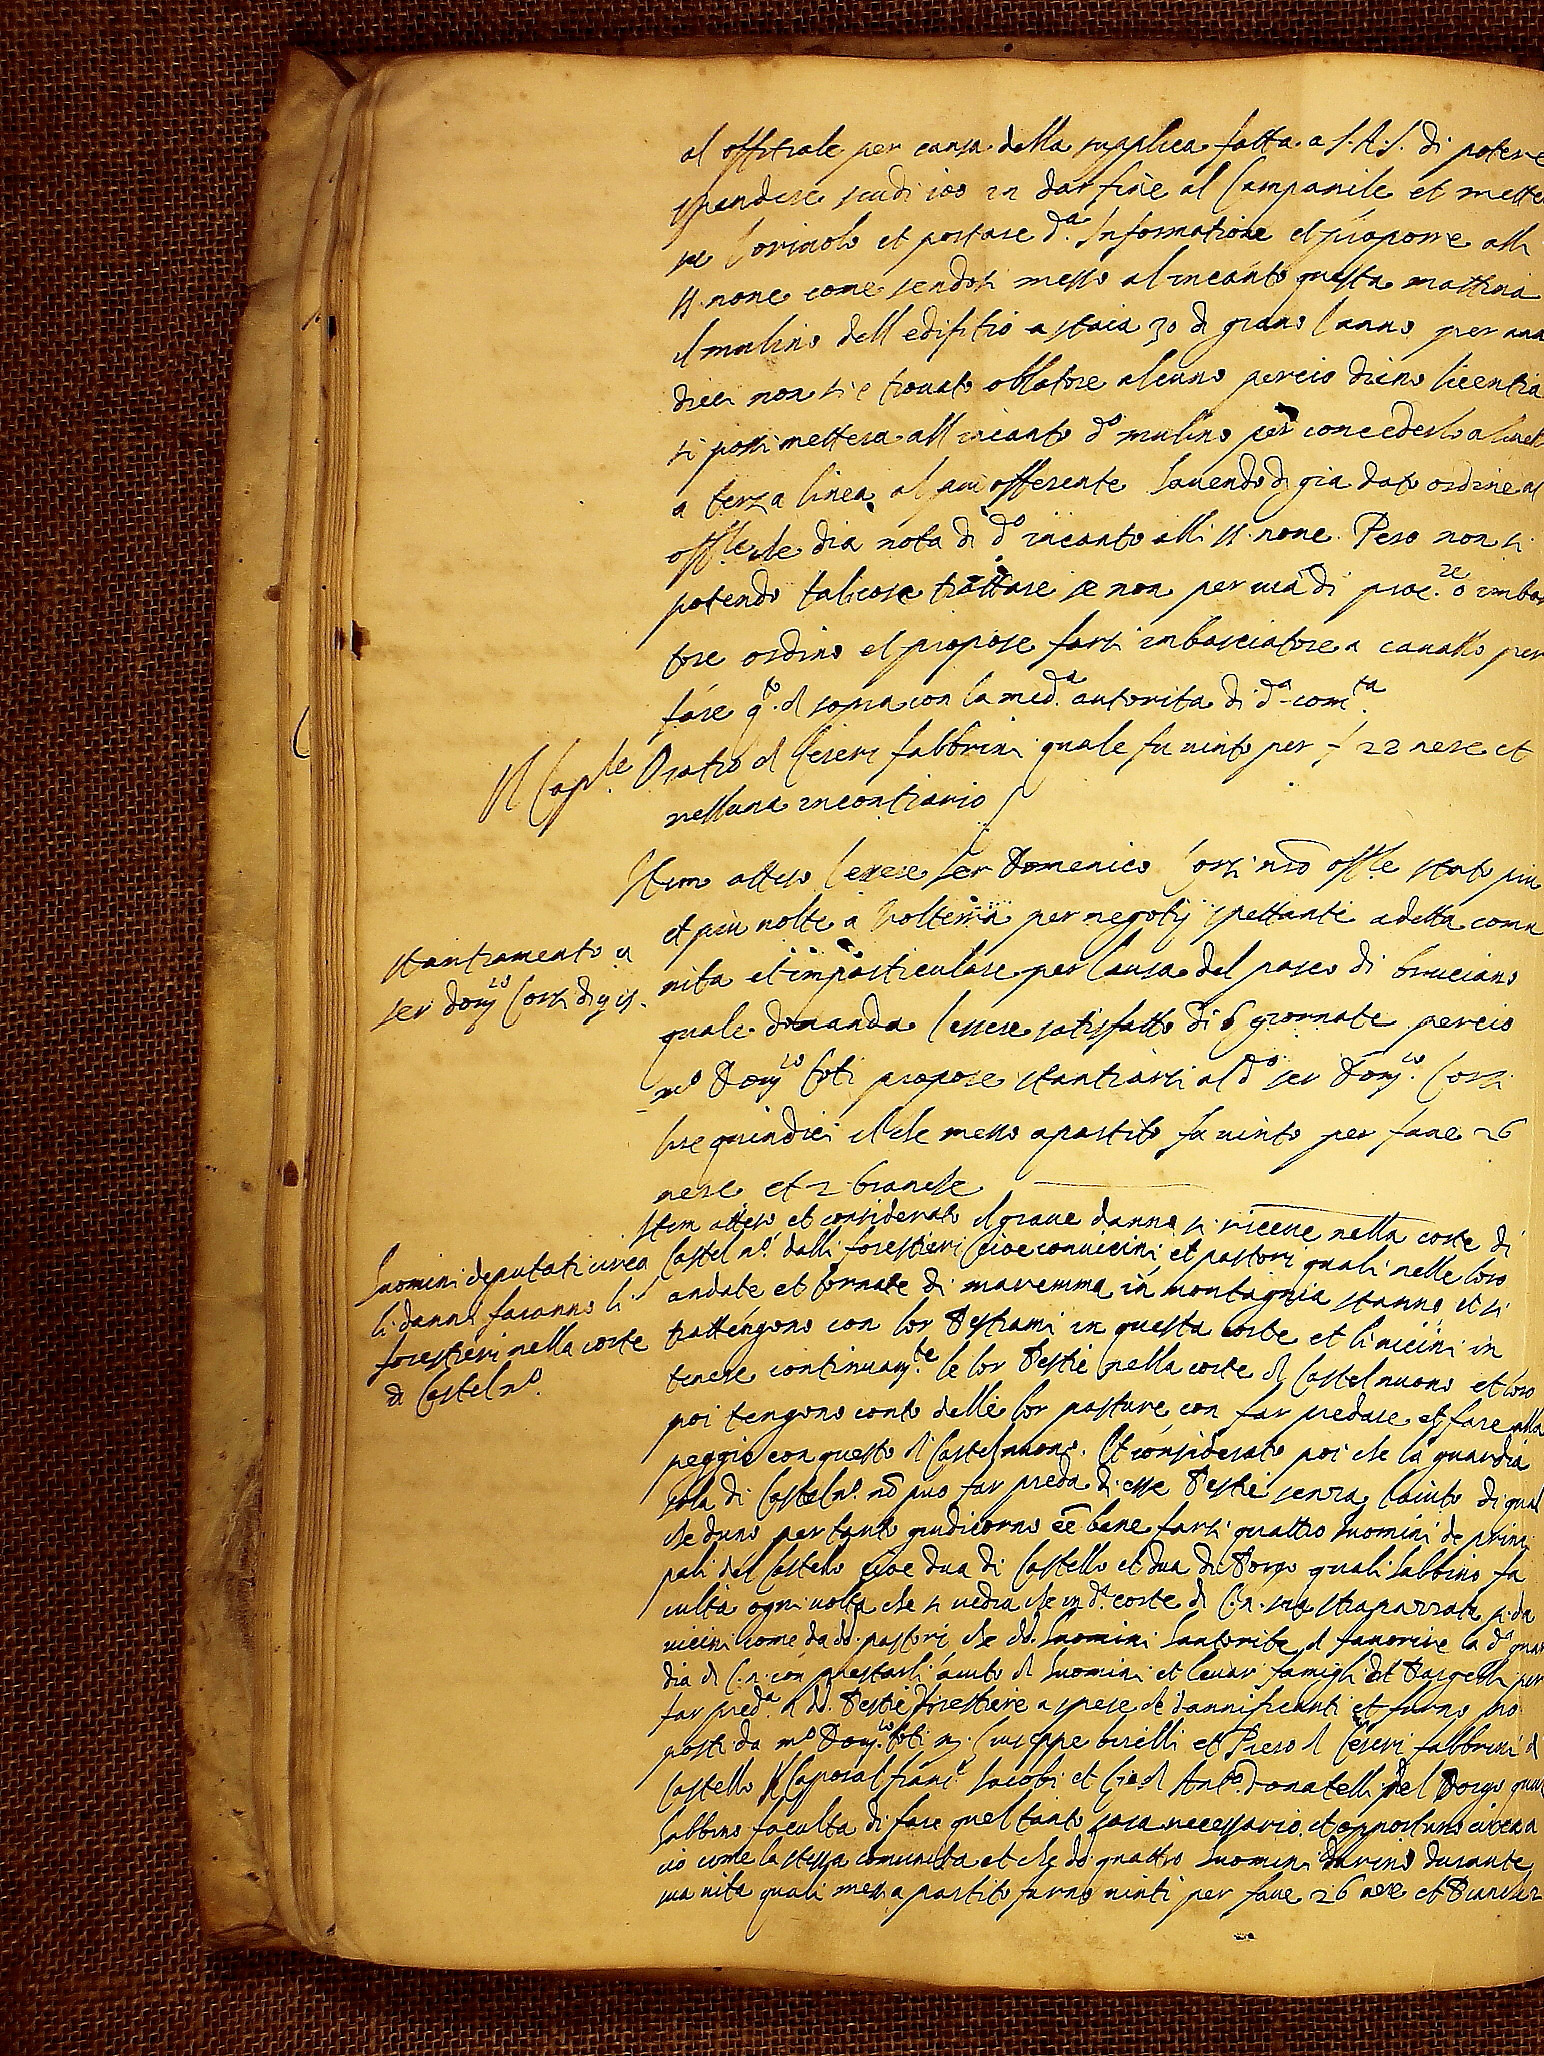 al offitiale per causa della supplica fatta a S.A.S. di potere
spendere scudi 100 in dar fine al Campanile et mette
re l'oriuolo et portare d.a Informatione et proporre alli
SS. none come sendosi messo al incanto questa mattina
il mulino dell edifitio a staia 30 di grano l'anno per anni
dieci non si è trovato oblatore alcuno percio dieno licentia
si possi mettere all incanto d.o mulino per concederlo a livell
a terza linea al piu offerente havendo di gia dato ordine al
off.le che dia nota di d.o incanto alli SS. none. Pero non si
potendo tali cose trattare se non per via di proc.re o imbas
tore ordino et propose farsi imbasciatore a cavallo per
fare q.to di sopra con la med.a autorita di d.a com.ta
Il Cap.le Oratio di Ceseri fabbrini quale fu vinto per f 22 nere et
nessuna incontrario
Item atteso l'essere ser Domenico Corsi nro off.le stato piu
et piu volte a Volterra per negotij spettanti a detta comu
nita et in particulare per causa del pasco di bruciano
stantiamento a
ser Dom.co Corsi di q 15.
quale domanda l'essere satisfatto di 6 giornate percio
m.o Dom.co foti propose stantiarsi al d.o ser Dom.co Corsi
lire quindici il che messo a partito fu vinto per fave 26
nere et 2 bianche
Item atteso et considerato il grave danno si riceve nella corte di
Castel n.o dalli forestieri cioe convicini et pastori quali nelle loro
huomini deputati circa
li danni facanno li
forestieri nella corte
di Castel n.o
andate et tornate di maremma in montagnia stanno et si
trattengono con lor bestiami in questa corte et li vicini in
tenere continuam.te le lor bestie nella corte di Castelnuovo et loro
poi tengono conto delle lor pasture con far predare et fare alla
peggio con questo di Castelnuovo. Et considerato poi che la guardia
sola di Castel n.o nõ puo far preda di esse bestie senza l'aiuto di qual
che duno per tanto giudicorno ee bene farsi quattro huomini de princi
pali del Castello cioe dua di Castello et dua di borgo quali habbino fa
culta ogni volta che si vedra che in d.a corte di C.n. sia strapazzata si da
vicini come da dd. pastori che dd. huomini l'autorita di favorire la d.a guar
dia di C.n. con prestarli aiuto di huomini et levar famigli del Bargello per
far preda di dd. bestie forestiere a spese de dannificanti et furno pro
posti da m.o Dom.co foti m. Giuseppe birelli et Piero di Ceseri fabbrini di
Castello Il Caporal franc.o Jacobi et Gio di Ant.o Donatelli del Borgo quali
habbino faculta di fare quel tanto sara necessario et opportuno circa a
cio come la stessa comunita et che dd. quattro huomini durino durante
ma vita quali messi a partito furno vinti per fave 26 nere et bianche 2